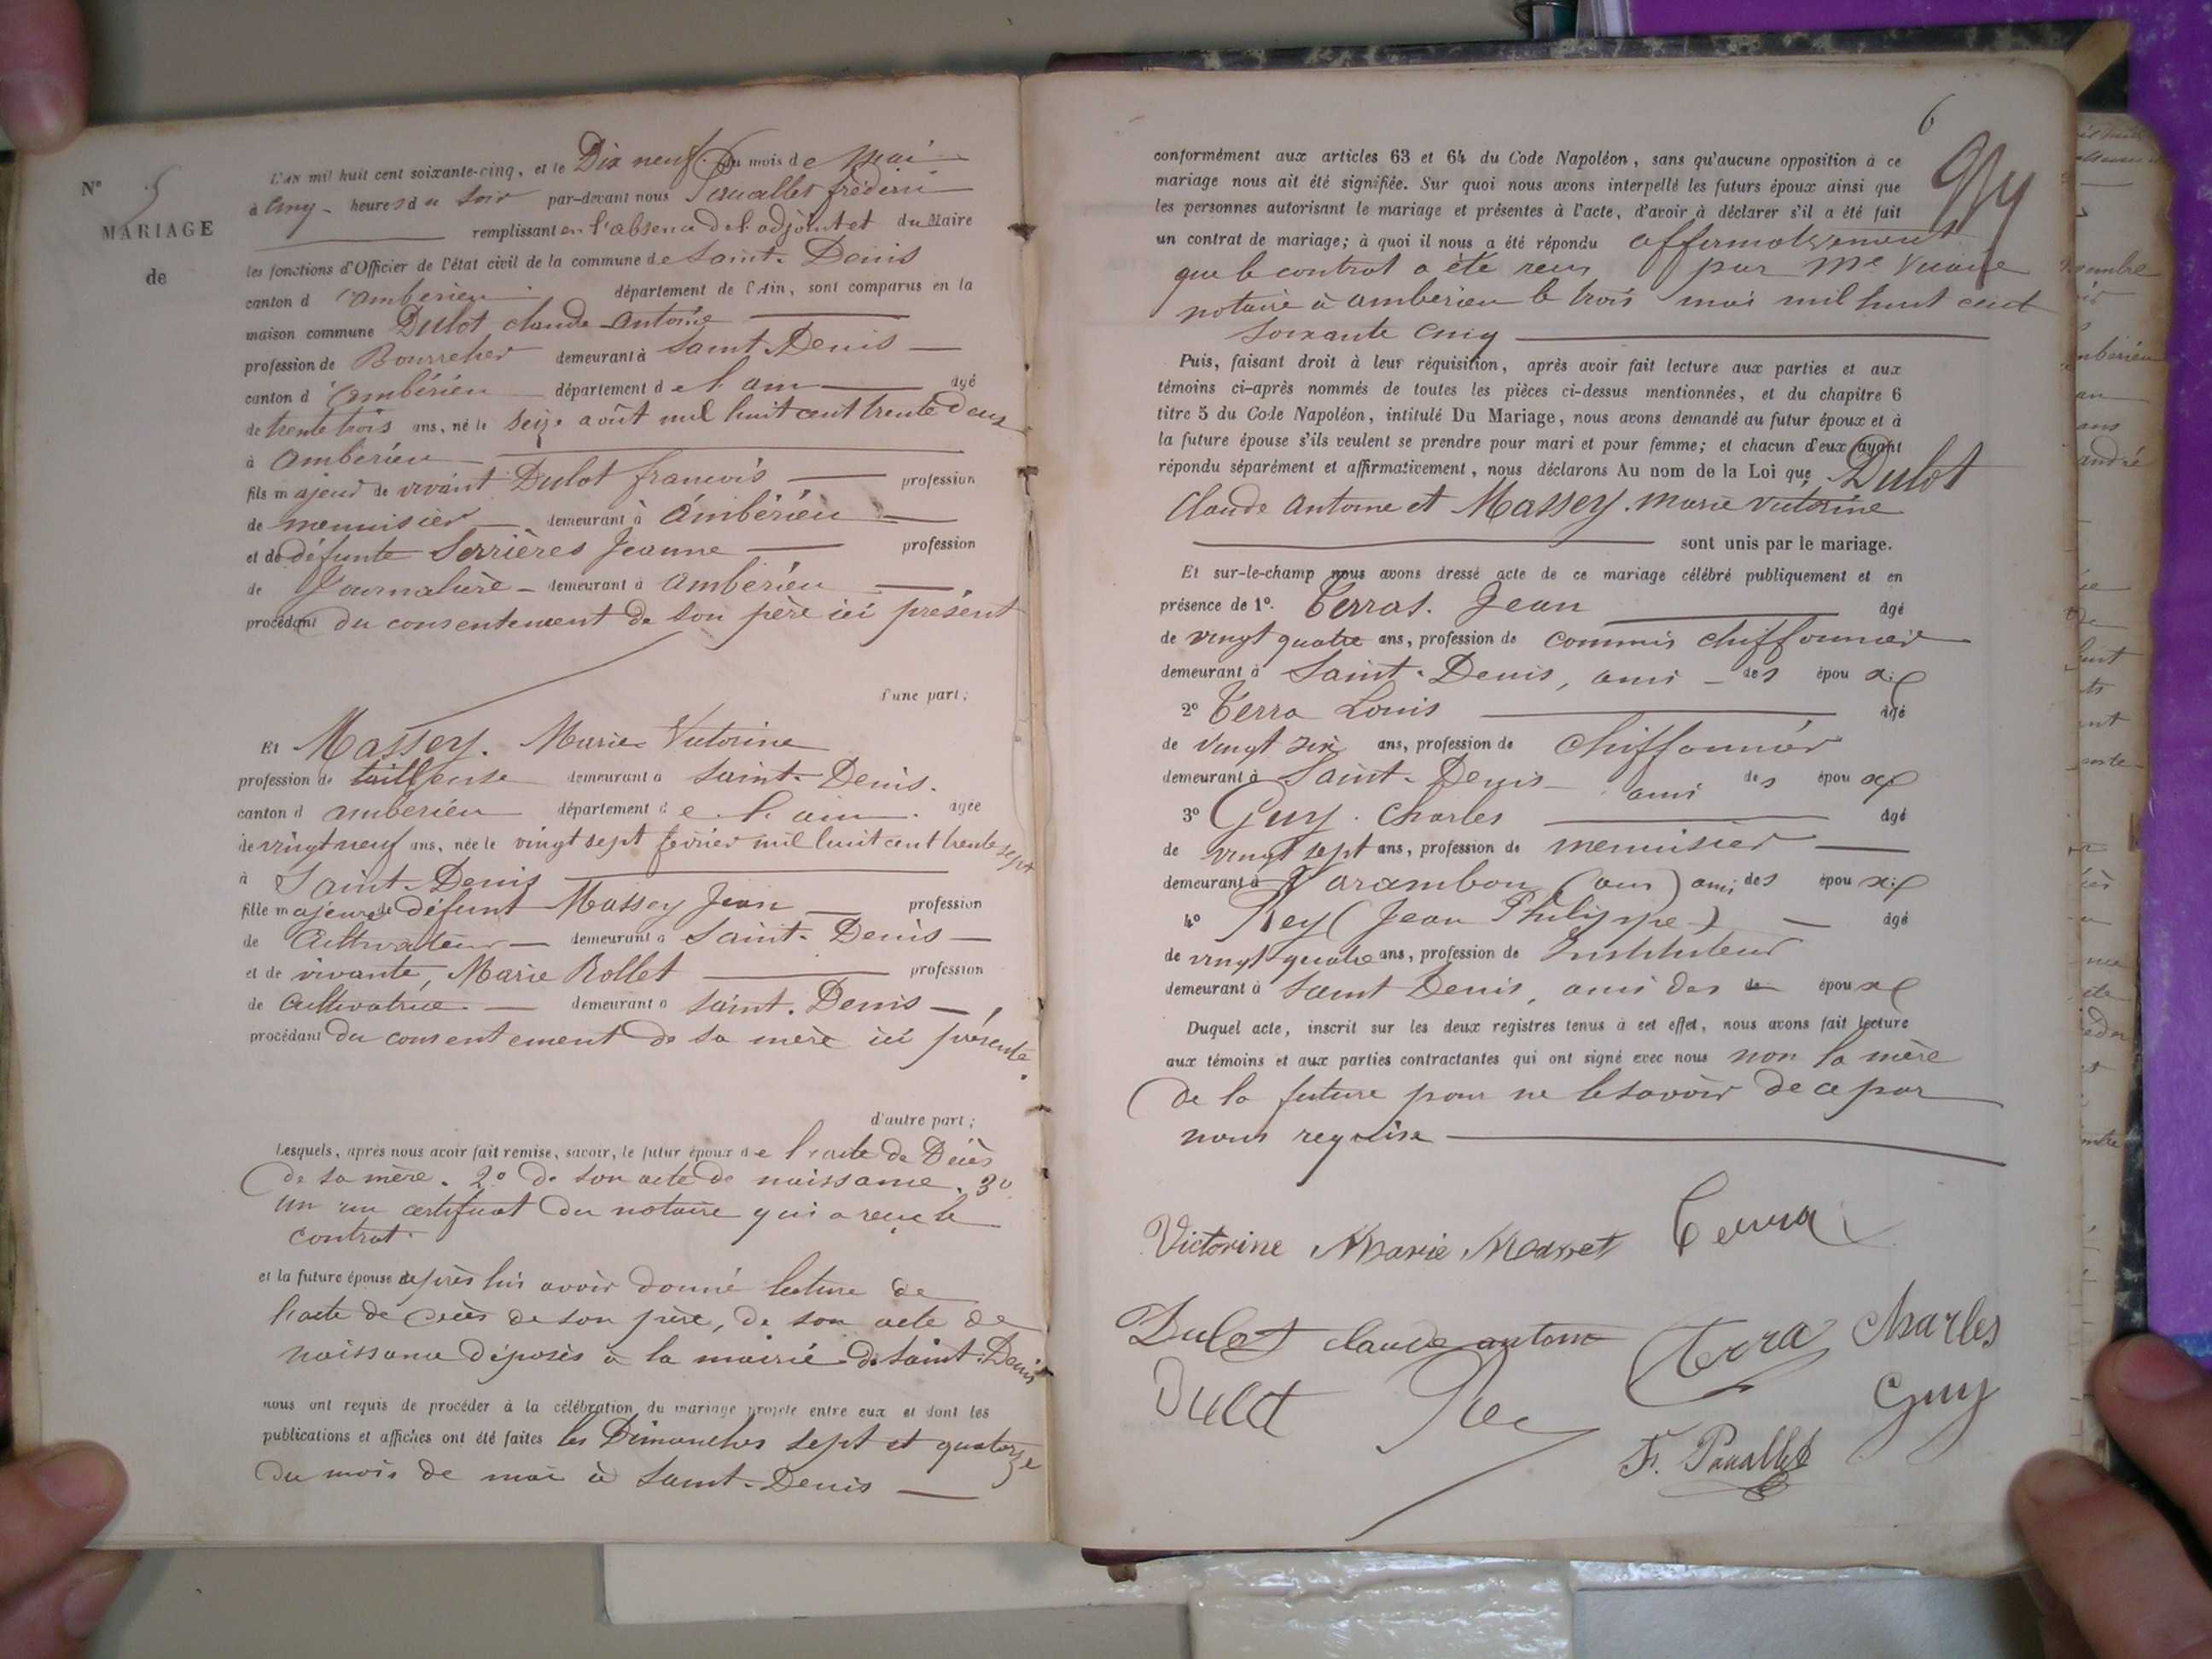 N° 5
MARIAGE
de
L'AN mil huit cent soixante-cinq, et le Dix neuf du mois de Mai
à Cinq heures du Soir par-devant nous Pauallet frédéric
remplissant en l'absence de l'adjoint et du Maire
les fonctions d'Officier de l'état civil de la commune de Saint-Denis
canton d'ambérieu département de l'Ain, sont comparus en la
maison commune Dulot claude-antoine
profession de Bourrelier demeurant à Saint-Denis
canton d'ambérieu département de l'ain âgé
de trente trois ans, né le seize août mil huit cent trente deux
à ambérieu
fils majeur de vivant Dulot francois profession
de menuisier demeurant à Ambérieu
et de défunte Serrières Jeanne profession
de Journalière demeurant à ambérieu
procédant du consentement de son père ici présent
d'une part;
Et Massey. Marie Victorine
profession de tailleuse demeurant à Saint-Denis.
canton d ambérieu département de l'ain. âgée
de vingt neuf ans, née le vingt sept février mil huit cent trente sept
à Saint-Denis
fille majeure de défunt Massey Jean profession
de Cultivateur demeurant à Saint-Denis
et de vivante, Marie Rollet profession
de cultivatrice demeurant à Saint-Denis
procédant du consentement de sa mère ici présente.
d'autre part;
Lesquels, après nous avoir fait remise, savoir, le futur époux de l'acte de Décès
de sa mère. 2° de son acte de naissance. 3°
un certificat du notaire qui a reçu le
contrat.
et la future épouse après lui avoir donné lecture de
l'acte de décès de son père, de son acte de
naissance déposés à la mairie de Saint-Denis
nous ont requis de procéder à la célébration du mariage projeté entre eux et dont les
publications et affiches ont été faites les Dimanches sept et quatorze
du mois de mai à Saint-Denis
6
conformément aux articles 63 et 64 du Code Napoléon, sans qu'aucune opposition à ce
mariage nous ait été signifiée. Sur quoi nous avons interpellé les futurs époux ainsi que
les personnes autorisant le mariage et présentes à l'acte, d'avoir à déclarer s'il a été fait
un contrat de mariage; à quoi il nous a été répondu affirmativement
que le contrat a été reçu par Me
notaire à ambérieu le trois mai mil huit cent
soixante cinq
Puis, faisant droit à leur réquisition, après avoir fait lecture aux parties et aux
témoins ci-après nommés de toutes les pièces ci-dessus mentionnées, et du chapitre 6
titre 5 du Code Napoléon, intitulé Du Mariage, nous avons demandé au futur époux et à
la future épouse s'ils veulent se prendre pour mari et pour femme; et chacun d'eux ayant
répondu séparément et affirmativement, nous déclarons Au nom de la Loi que Dulot
Claude antoine et Massey. Marie Victorine
sont unis par le mariage.
Et sur-le-champ nous avons dressé acte de ce mariage célébré publiquement et en
présence de 1°. Terras. Jean âgé
de vingt quatre ans, profession de commis chiffonnier
demeurant à Saint-Denis, ami des époux
2° Terra Louis âgé
de vingt six ans, profession de chiffonnier
demeurant à Saint-Denis ami des époux
3° Guy. Charles âgé
de vingt sept ans, profession de menuisier
demeurant à Varambon (ain) ami des époux
4° Rey (Jean Philippe) âgé
de vingt quatre ans, profession de Instituteur
demeurant à Saint Denis, ami des époux
Duquel acte, inscrit sur les deux registres tenus à cet effet, nous avons fait lecture
aux témoins et aux parties contractantes qui ont signé avec nous non la mère
de la future pour ne le savoir de ce par
nous requise
Victorine Marie Masset Terra
Dulot claude antoine Terra Charles
Dulot Rey Guy
F. Pauallet